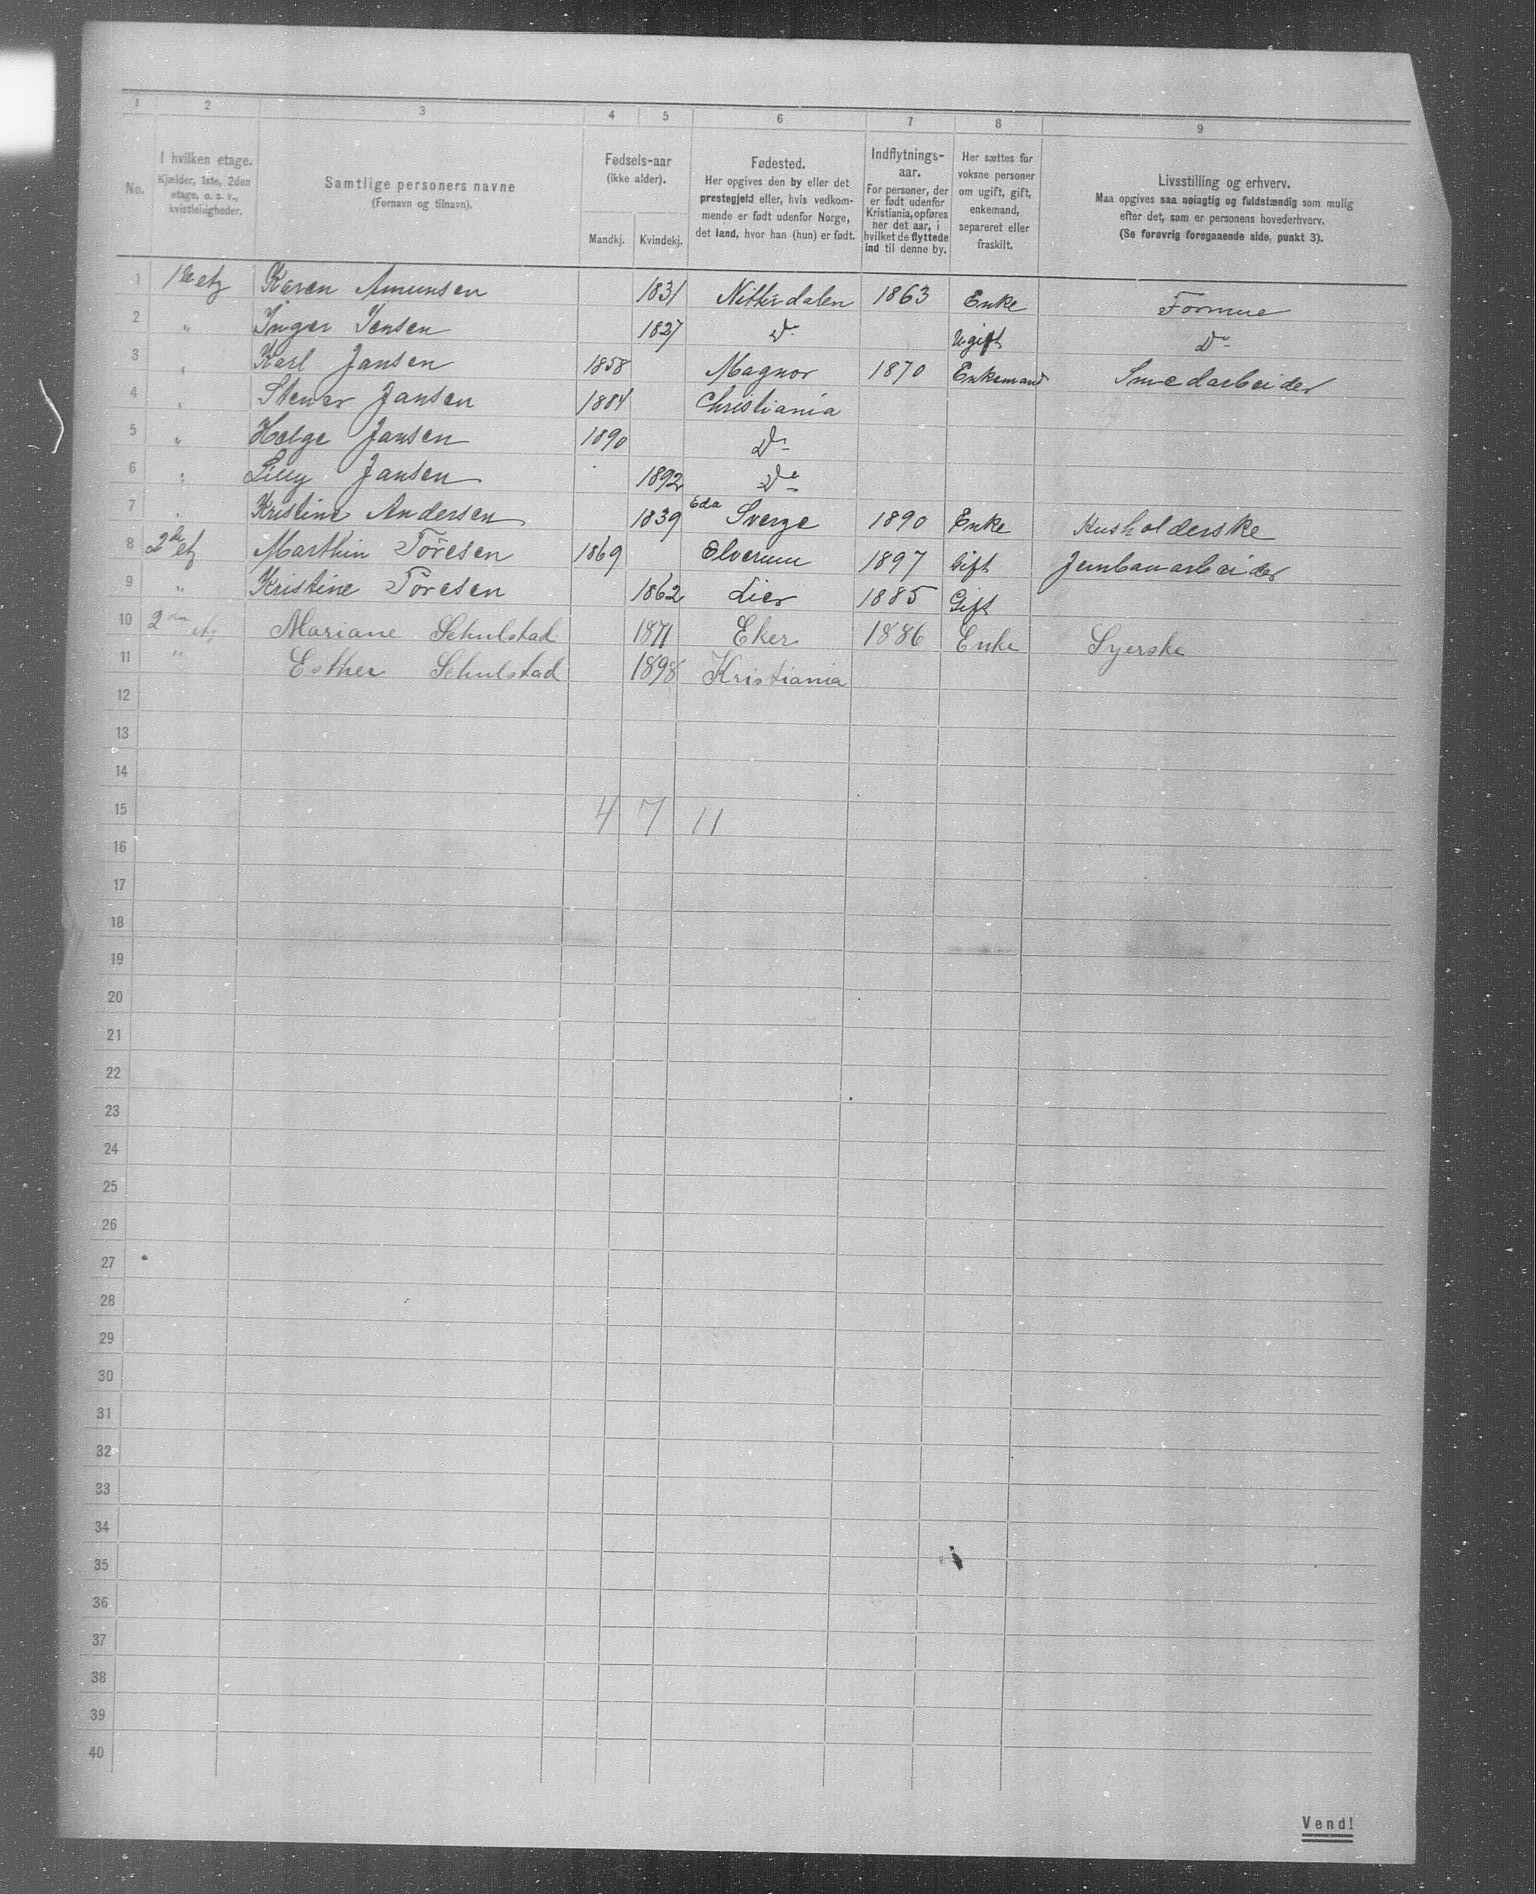 1 2 3 4 5 6 7 8 9
No.
I hvilken etage.
Kjælder, 1ste, 2den
etage, o. s. v.,
kvistleiligheder.
Samtlige personers navne
(Fornavn og tilnavn).
Fødsels-aar
(ikke alder).
Mandkj. Kvindekj.
Fødested.
Her opgives den by eller det
prestegjeld eller, hvis vedkom-
mende er født udenfor Norge,
det land, hvor han (hun) er født.
Indflytnings-
aar.
For personer, der
er født udenfor
Kristiania, opføres
her det aar, i
hvilket de flyttede
ind til denne by.
Her sættes for
voksne personer
om ugift, gift,
enkemand,
separeret eller
fraskilt.
Livsstilling og erhverv.
Maa opgives saa nøiagtig og fuldstændig som mulig
efter det, som er personens hovederhverv.
(Se forøvrig foregaaende side, punkt 3).
1 1ste etg Karen Amunsen 1831 Nitterdalen 1863 Enke Formue
2 " Inger Jensen 1827 Do Ugift Do
3 " Karl Jansen 1858 Magnor 1870 Enkemand Smedarbeider
4 " Stener Jansen 1884 Christiania
5 " Helge Jansen 1890 Do
6 " Lilly Jansen 1892 Do
7 " Kristine Andersen 1839 Eda Sverge 1890 Enke Husholderske
8 2de etg Marthin Töresen 1869 Elverum 1897 Gift Jernbanarbeider
9 " Kristine Töresen 1862 Lier 1885 Gift
10 2den etg Mariane Schulstad 1871 Eker 1886 Enke Syerske
11 " Esther Schulstad 1898 Kristiania
12
13
14
15 4 7 11
16
17
18
19
20
21
22
23
24
25
26
27
28
29
30
31
32
33
34
35
36
37
38
39
40
Vend!